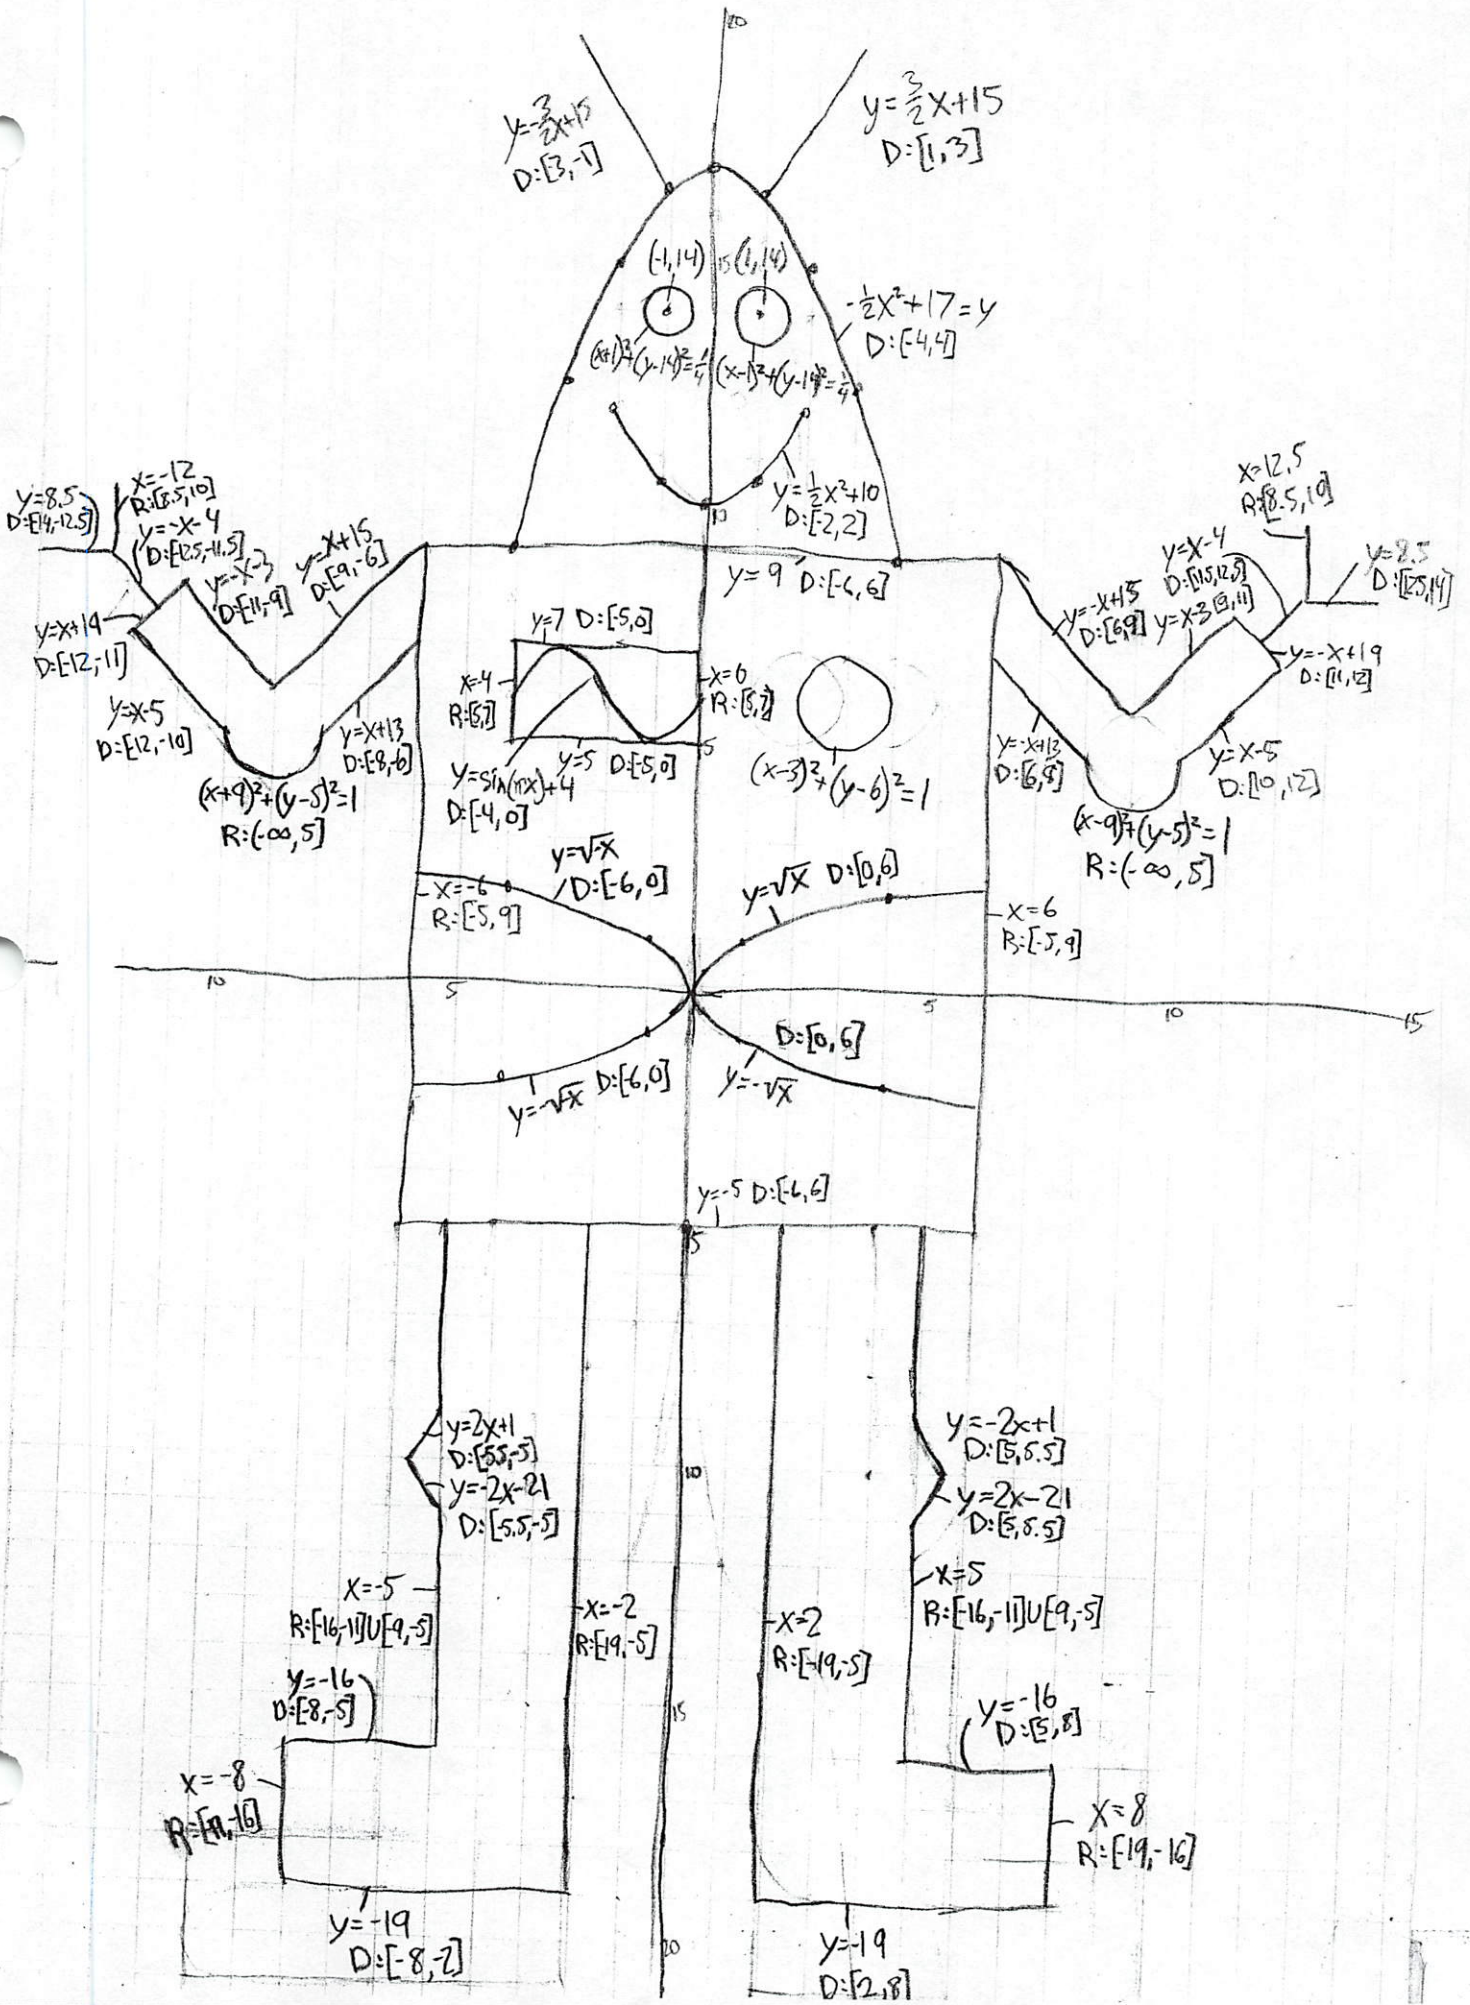 20
y=-3/2x+15
D:[3,-1]
y=3/2x+15
D:[1,3]
(-1,14)
15
(1,14)
-1/2x²+17=y
D:[-4,4]
(x+1)²+(y-14)²=1/4
(x-1)²+(y-14)²=1/4
y=1/2x²+10
D:[-2,2]
10
y=8.5
D:[-14,-12.5]
x=-12
R:[8.5,10]
y=-x-4
D:[-12.5,-11.5]
y=-x-3
D:[-11,-9]
y=x+15
D:[-9,-6]
y=x+19
D:[-12,-11]
y=x-5
D:[-12,-10]
y=x+13
D:[-8,-6]
(x+9)²+(y-5)²=1
R:(-∞,5]
y=9 D:[-6,6]
y=7 D:[-5,0]
x=-4
R:[5,7]
x=0
R:[5,7]
5
y=5 D:[-5,0]
y=sin(πx)+4
D:[-4,0]
(x-3)²+(y-6)²=1
x=12.5
R:[8.5,10]
y=x-4
D:[11.5,12.5]
y=8.5
D:[12.5,14]
y=-x+15
D:[6,9]
y=x-3 [9,11]
y=-x+19
D:[11,12]
y=-x+13
D:[6,8]
y=x-5
D:[10,12]
(x-9)²+(y-5)²=1
R:(-∞,5]
y=√-x
D:[-6,0]
y=√x D:[0,6]
x=-6
R:[-5,9]
x=6
R:[-5,9]
10
5
5
10
15
y=-√-x D:[-6,0]
D:[0,6]
y=-√x
y=-5 D:[-6,6]
5
y=2x+1
D:[-5.5,-5]
y=-2x-21
D:[-5.5,-5]
10
y=-2x+1
D:[5,5.5]
y=2x-21
D:[5,5.5]
x=-5
R:[-16,-11]U[-9,-5]
x=-2
R:[-19,-5]
x=2
R:[-19,-5]
x=5
R:[-16,-11]U[-9,-5]
y=-16
D:[-8,-5]
15
y=-16
D:[5,8]
x=-8
x=8
R:[-19,-16]
y=-19
D:[-8,-2]
20
y=-19
D:[2,8]